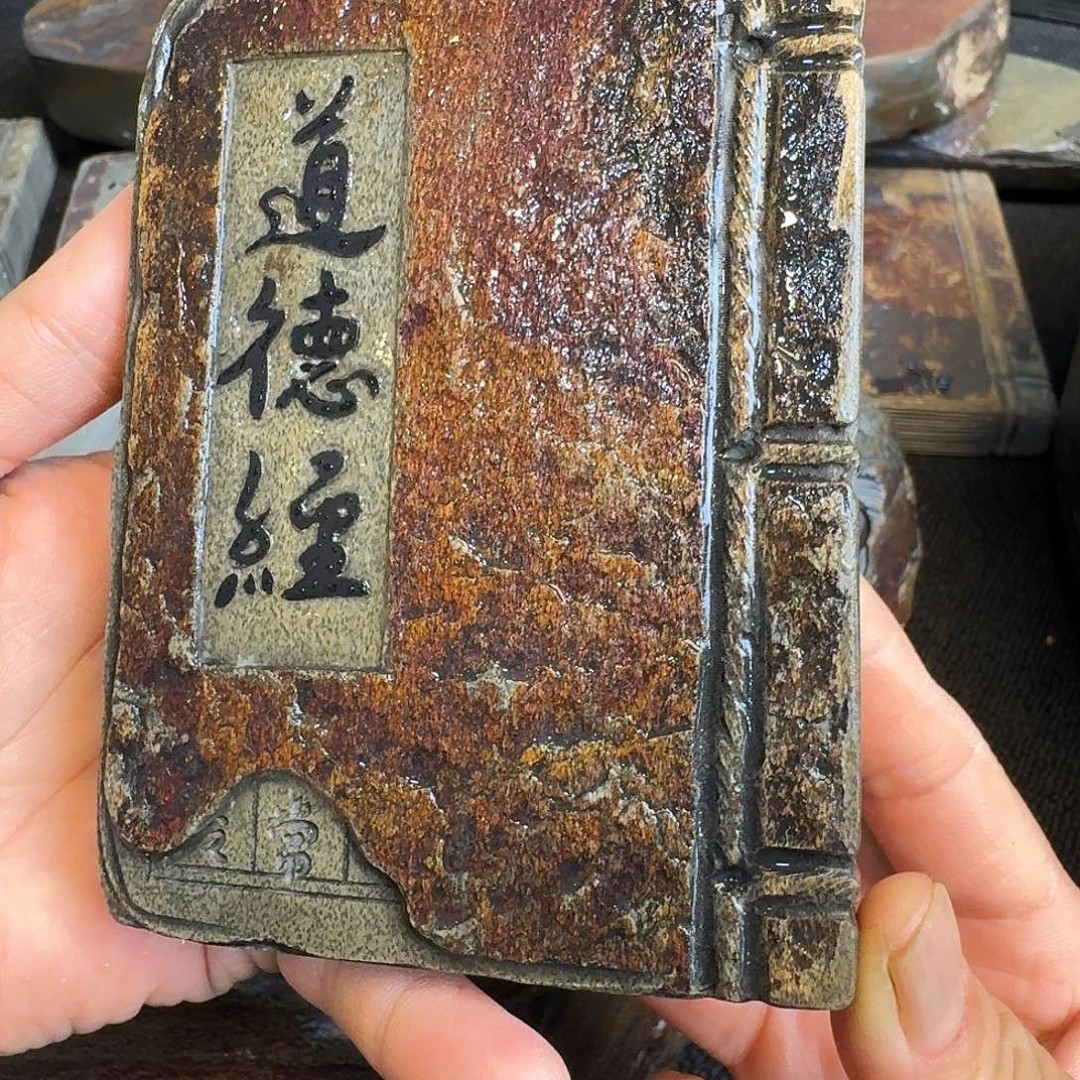 道德經
常